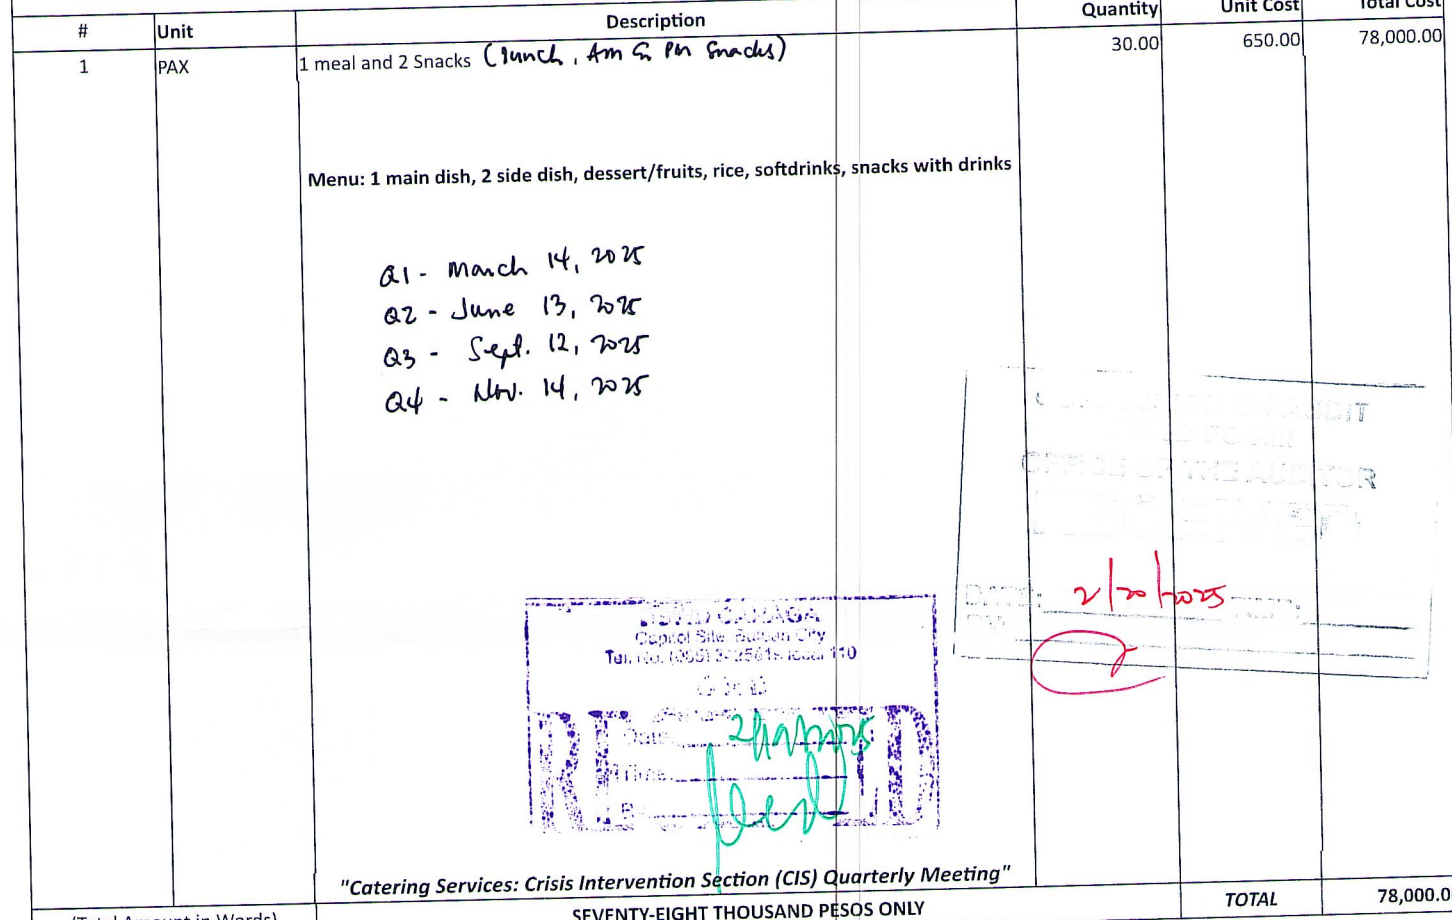 # Unit Description Quantity Unit Cost Total Cost
1 PAX 1 meal and 2 Snacks (lunch, Am & Pm Snacks) 30.00 650.00 78,000.00
Menu: 1 main dish, 2 side dish, dessert/fruits, rice, softdrinks, snacks with drinks
Q1 - March 14, 2025
Q2 - June 13, 2025
Q3 - Sept. 12, 2025
Q4 - Nov. 14, 2025
2/20/2025
Capitol Site
Tel. No. local 110
Date
Time
"Catering Services: Crisis Intervention Section (CIS) Quarterly Meeting"
TOTAL 78,000.0
(Total Amount in Words) SEVENTY-EIGHT THOUSAND PESOS ONLY